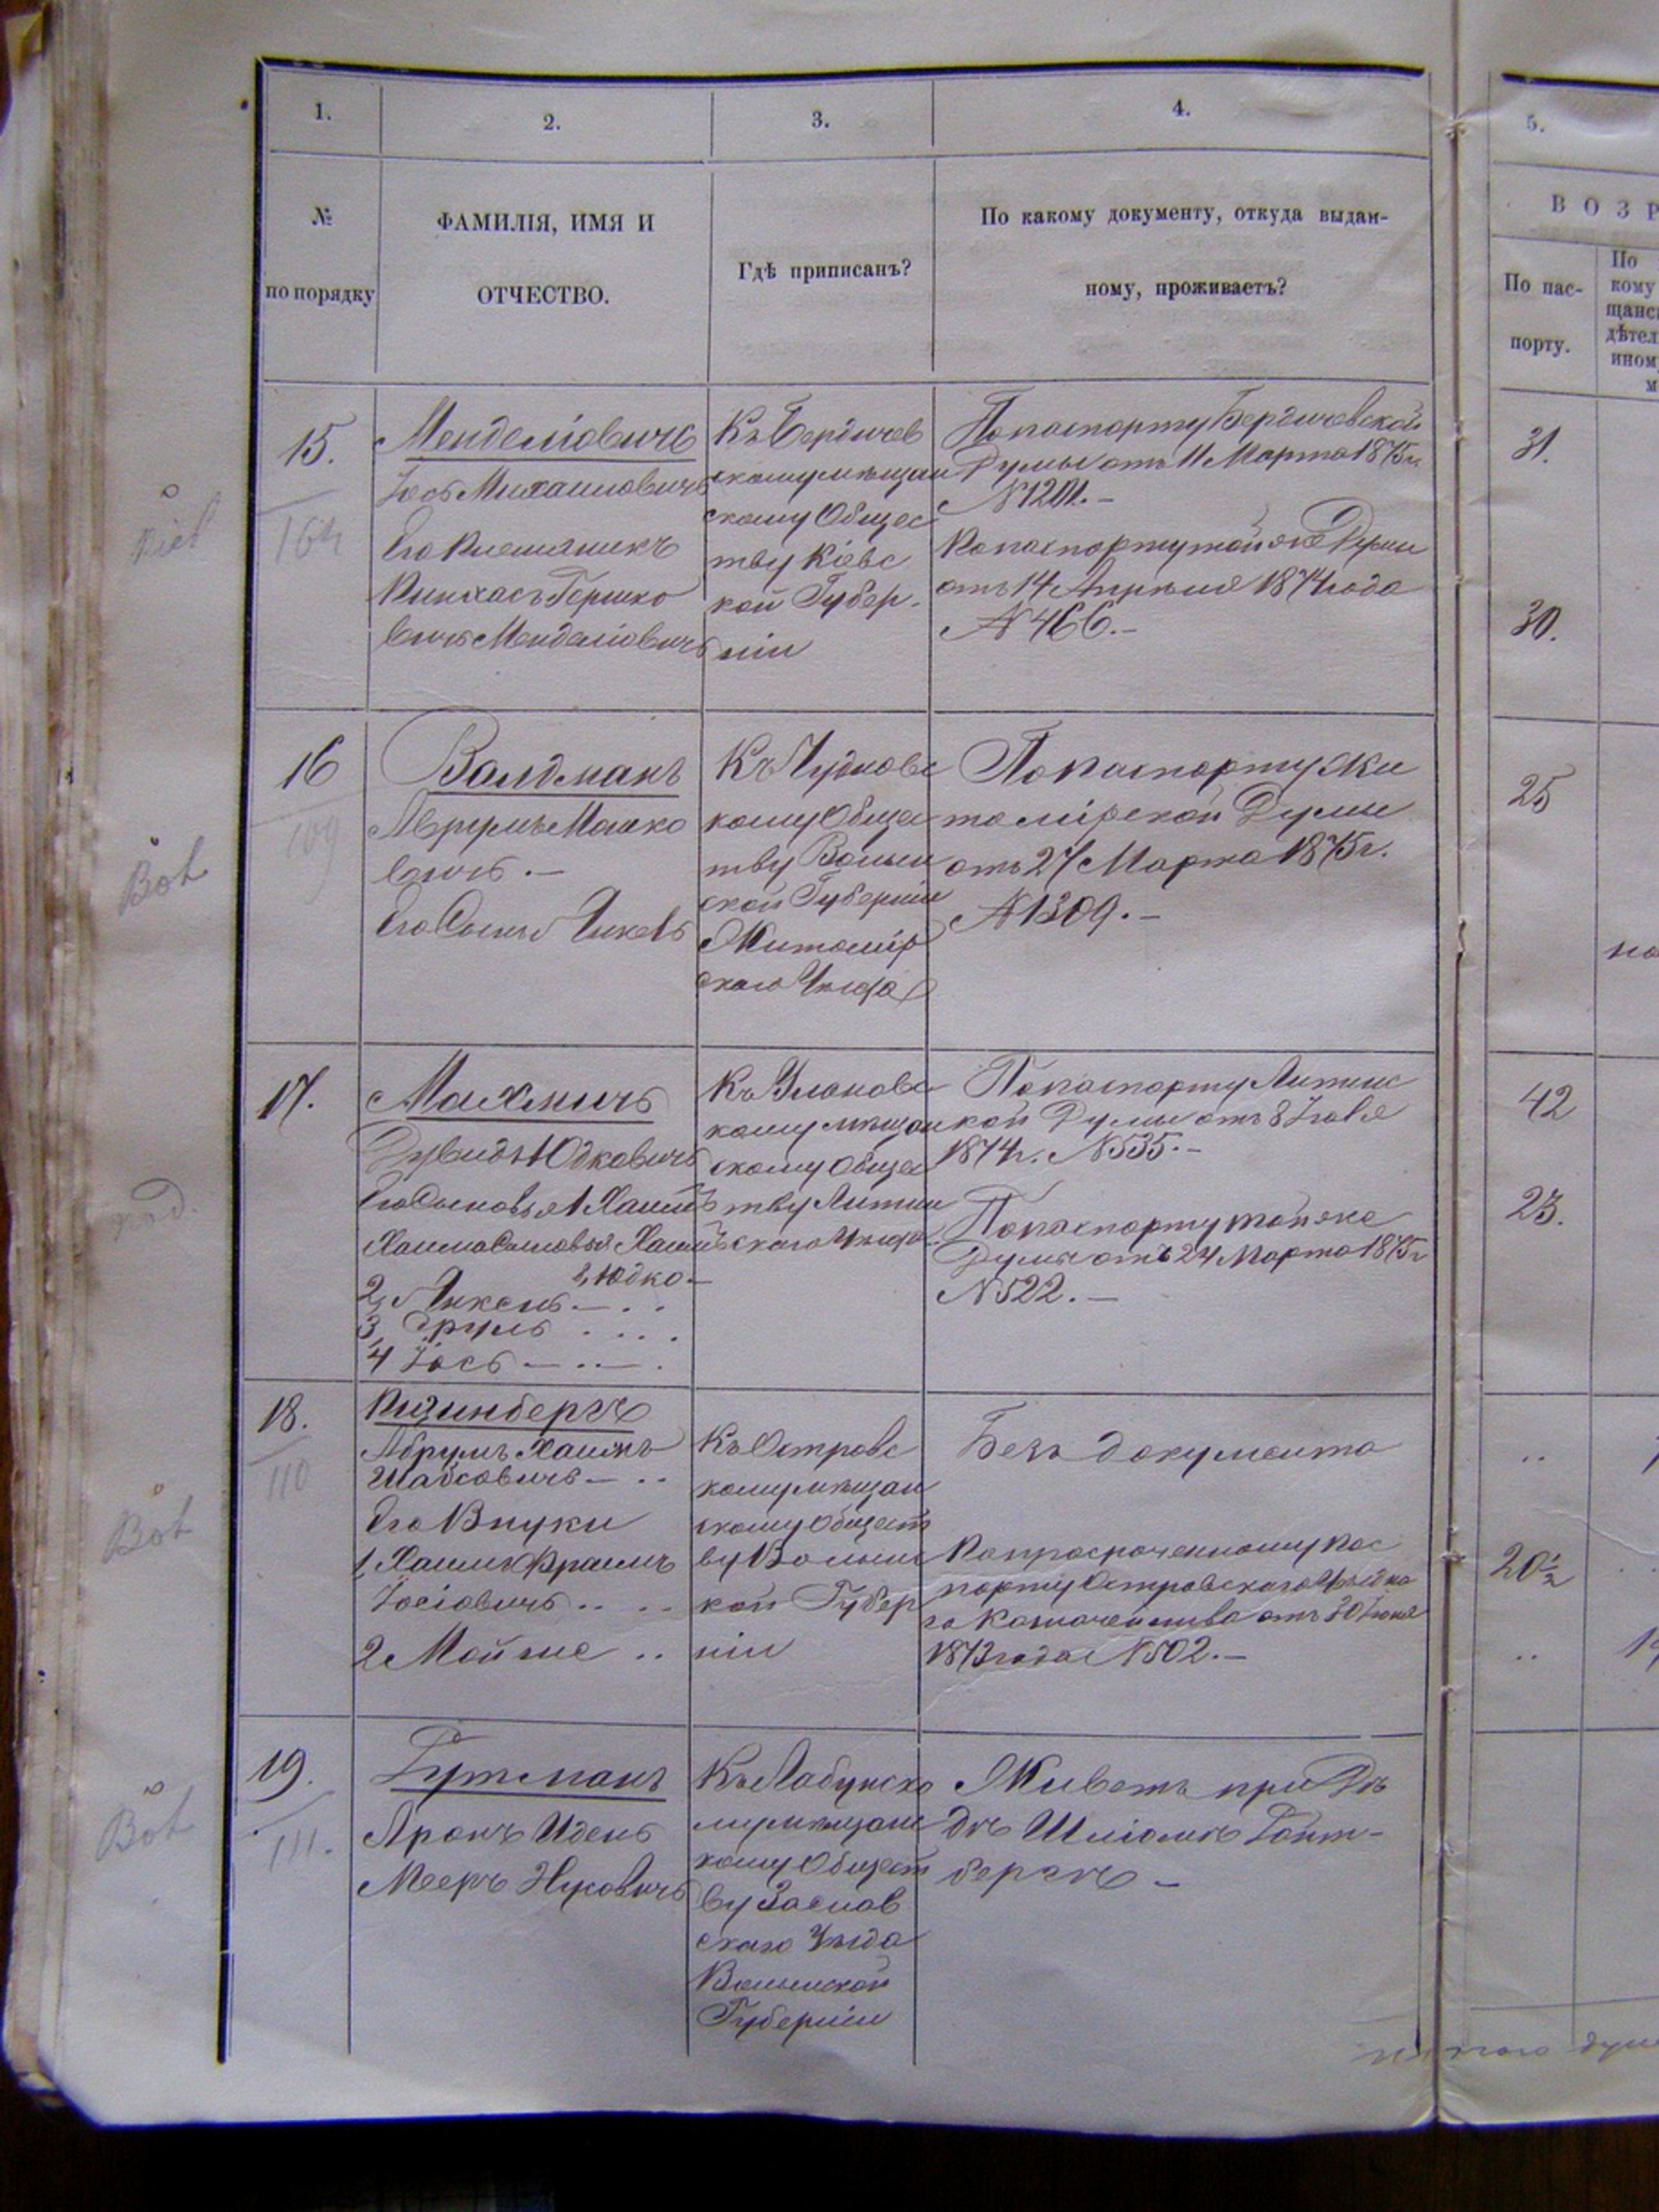 1.
2.
3.
4.
5.
№
по порядку
ФАМИЛІЯ, ИМЯ И
ОТЧЕСТВО.
Гдѣ приписанъ?
По какому документу, откуда выдан-
ному, проживаетъ?
ВОЗР
По пас-
порту.
По
кому
щанс
дѣтел
ином
м
15.
164
Менделіовичъ
Іось Михаиловичъ
Его Племяникъ
Пинхасъ Гершко
вичъ Менделіовичъ
Къ Бердичев
скому мѣщан
скому Общес
тву Кіевс
кой Губер-
ніи
По паспорту Бердичевской
Думы отъ 11 Марта 1875 г.
№ 1201.-
По паспорту той же Думы
отъ 14 Апрѣля 1874 года
№ 466.-
31.
30.
16
109
Валдманъ
Аврумъ Мошко
вичъ.-
Его Сынъ Янкель
Къ Чудновс
кому Общес
тву Волын
ской Губерніи
Житомір
скаго Уѣзда
По паспорту Жи
томірской Думы
отъ 27 Марта 1875 г.
№ 1309.-
25
Вол
17.
Махничъ
Дувидъ Юдковичъ
Его Сыновья 1 Хаимъ
Хаима Сыновья Хаимъ
2, Юдко-
2, Янкель-..
3, Сруль ....
4 Іось-..-.
Къ Улановс
кому мѣщан
скому Общес
тву Литин
скаго Уѣзда
По паспорту Литинс
кой Думы отъ 8 Іюля
1874 г. № 535.-
По паспорту той же
Думы отъ 24 Марта 1875 г
№ 522.-
42
23.
под.
18.
110
Абрумъ Хаимъ
Шабсовичъ-..
Его Внуки
1, Хаимъ Фраимъ
Іосіовичъ....
2 Мойше ..
Къ Островс
кому мѣщан
скому Общест
ву Волынс
кой Губер
ніи
Безъ документа
По просроченному пас
порту Островскаго Уѣздна
го Казначейства отъ 30 Іюня
1873 года № 502.-
..
20½
..
Вол
19.
111.
Гутманъ
Аронъ Идель
Мееръ Нусовичъ
Къ Лабунско
му мѣщанс
кому Общест
ву Заслав
скаго Уѣзда
Волынской
Губерніи
Живетъ при Дѣ
дѣ Шліомѣ Гойт-
бергъ-
Вол